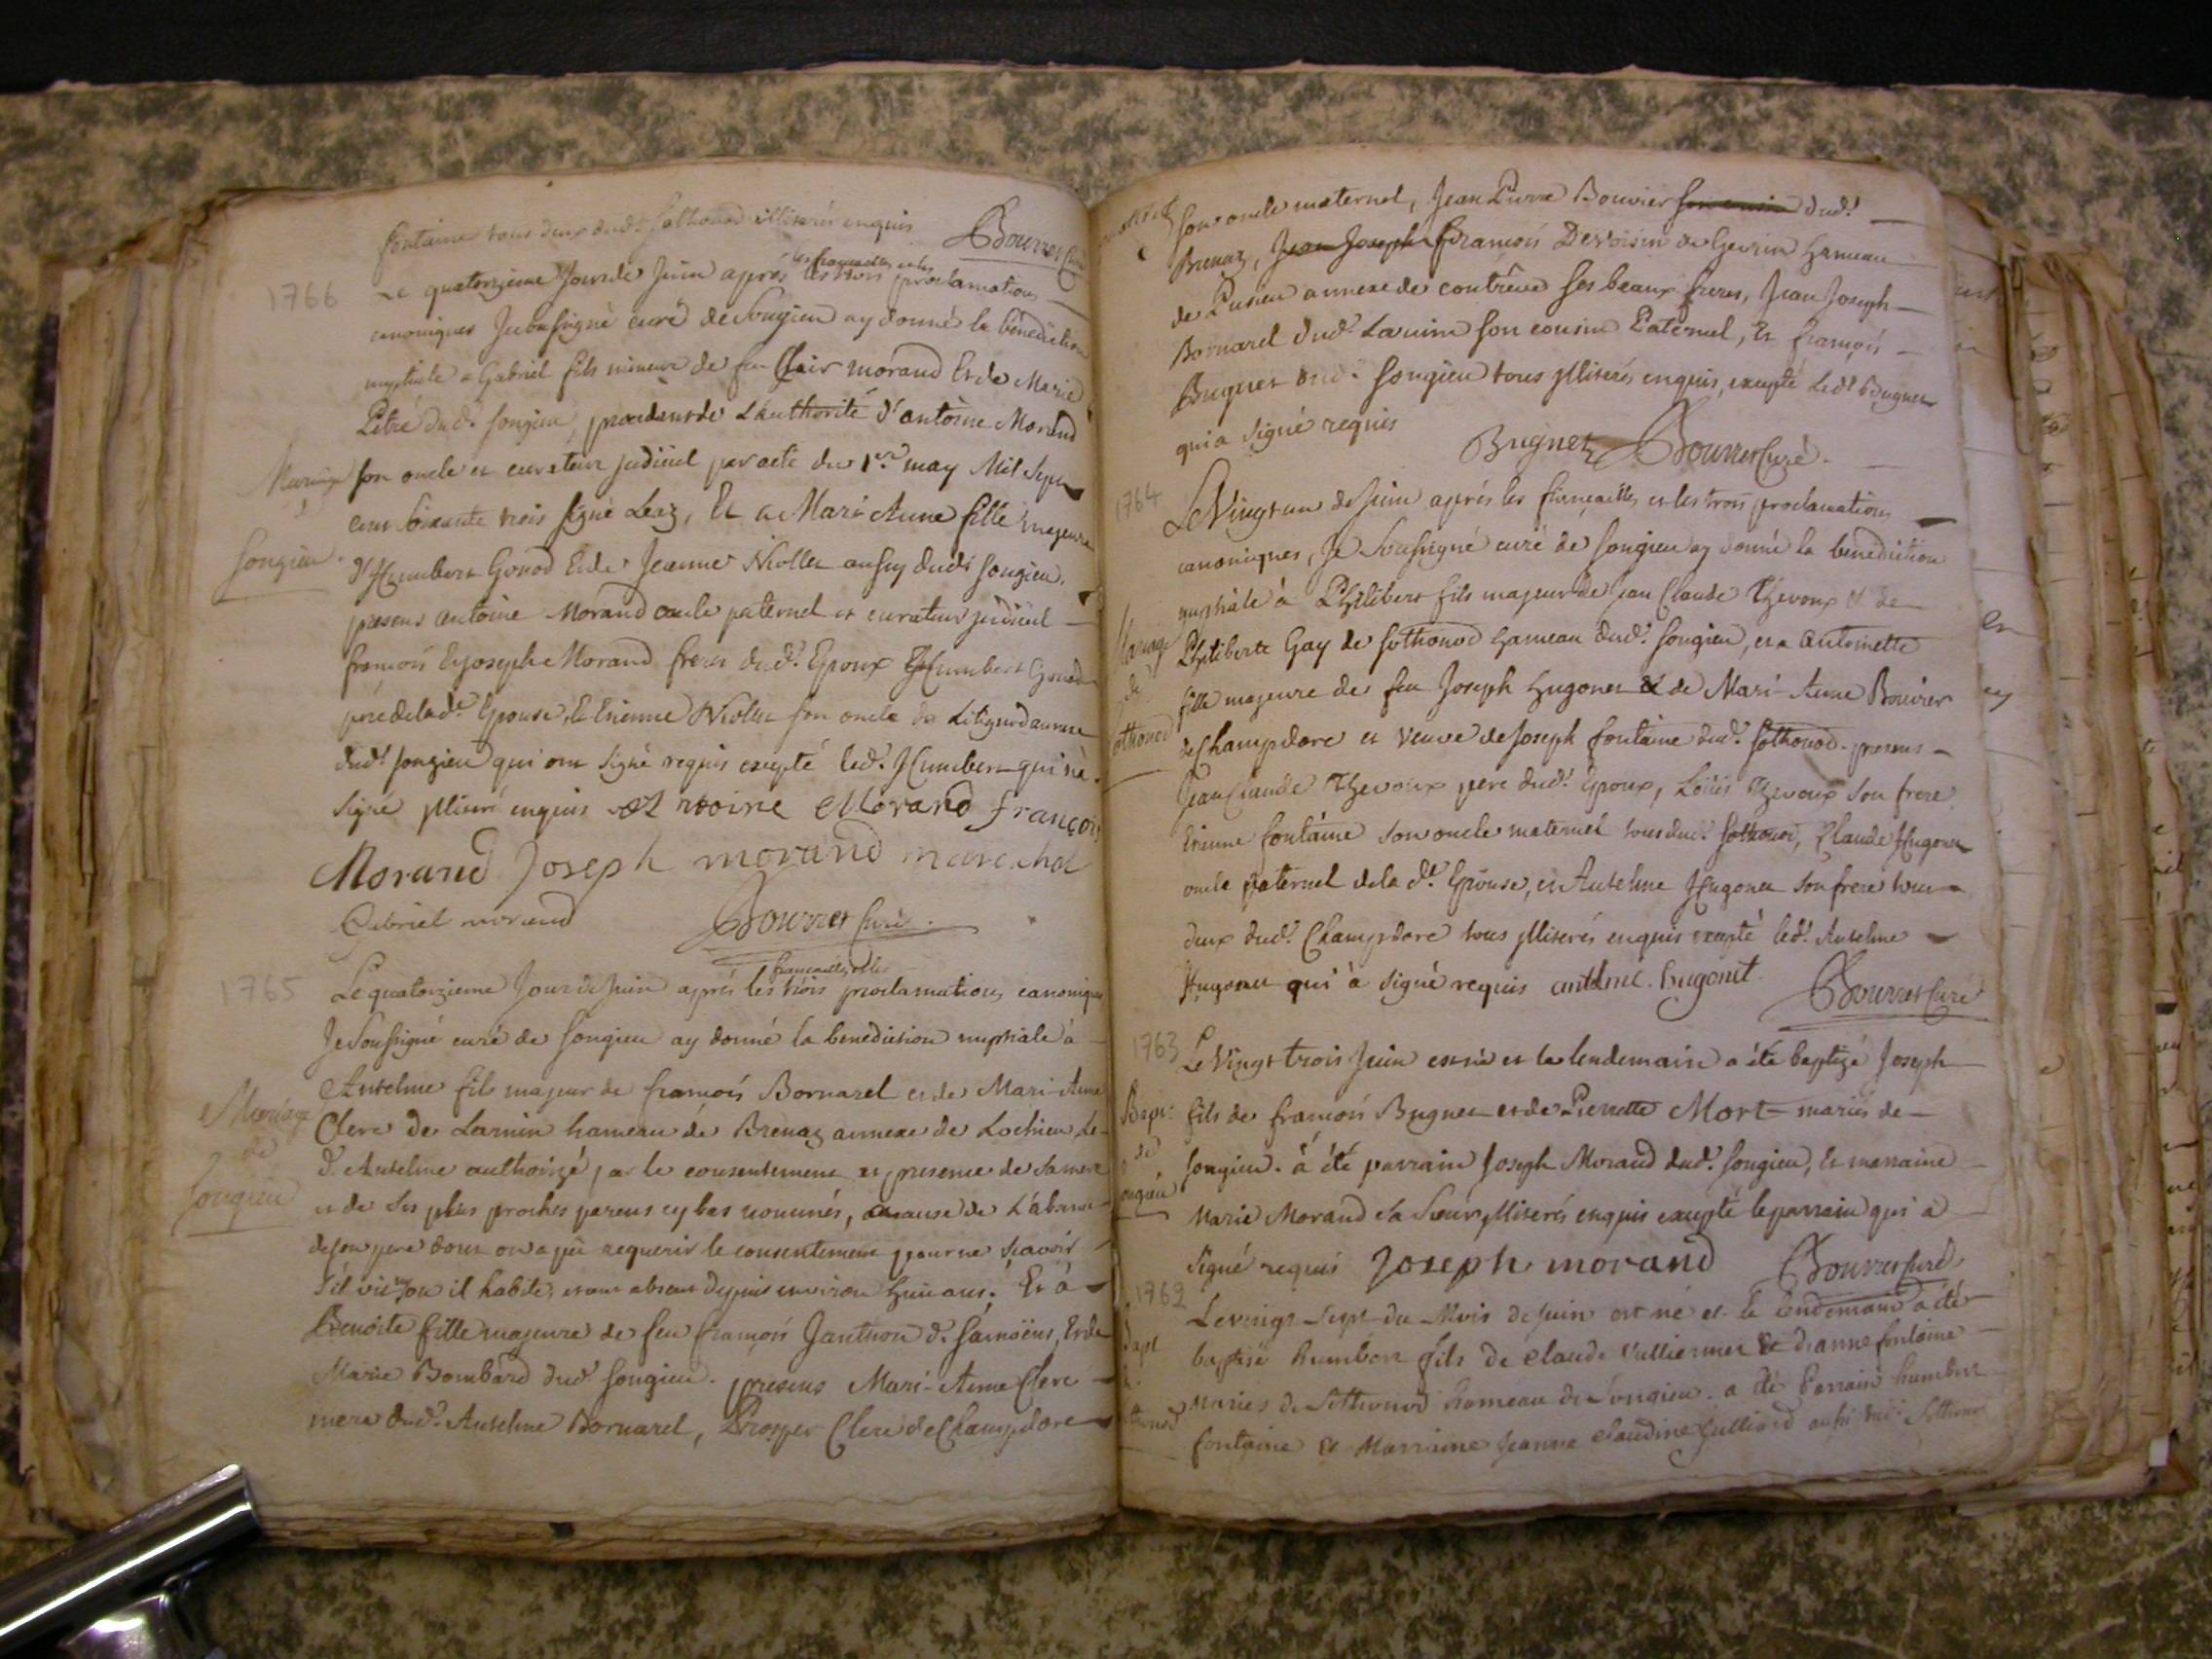 fontaine tous deux dud.t sothonod illiterés enquis Bourret Curé
1766
les fiancailles et les
Le quatorzieme Jour de Juin après les trois proclamations
canoniques Je soussigné curé de Songieu ay donné la bénédiction
nuptiale a Gabriel fils mineur de feu Clair morand Et de Marie
Pétré dud.t songieu, procedant de L'authorité d'antoine Morand
Mariage
d
Songieu.
son oncle et curateur judiciel par acte du 1.er may Mil Sept
cent soixante trois signé Leaz, Et a Mari-Anne fille majeure
d'Humbert Gonod Et de Jeanne Niollet aussy dud.t songieu.
presens antoine Morand oncle paternel et curateur judiciel
françois Et joseph Morand freres dud.t Epoux Humbert Gonod
pere de lad.te Epouse, Et Etienne Niollet son oncle de Litignod annexe
dud.t songieu qui ont signé requis excepté led.t Humbert qui n'a
signé illiteré enquis Antoine Morand françois
Morand Joseph morand marechal
Gabriel morand Bourret Curé.
1765
fiancailles et les
Le quatorzieme Jour de Juin après les trois proclamations canoniques
Je Soussigné curé de songieu ay donné la benediction nuptiale à
Anselme fils majeur de françois Bornarel et de Mari-Anne
Mariage
de
Songieu
Clerc de Larnin hameau de Brenaz annexe de Lochieu, Le
d. Anselme authorizé par le consentement et presence de sa mere
et de ses plus proches parens cy bas nommés, a cause de L'absence
de son pere dont on a pû requerir le consentement pour ne sçavoir
s'il vit, ou il habite, etant absent depuis environ huit ans; Et à
Benoite fille majeure de feu françois Janthon de samoëns, Et de
Marie Bombard dud.t songieu. presens Mari-Anne Clerc
mere dud.t Anselme Bornarel, Prosper Clerc de Champdore
son oncle maternel, Jean Pierre Bouvier son cousin dud.t
Brenaz, Jean Joseph françois Devoisin de hameau
de Lusieu annexe de contrêve ses beaux freres, Jean Joseph
Bornarel dud.t Larnin son cousin Paternel, Et françois
Bugnet dud.t songieu tous illiterés enquis, excepté led.t Bugnet
qui a signé requis Bugnet Bourret Curé.
1764
Le Vingt un de Juin après les fiancailles et les trois proclamations
canoniques, Je Soussigné curé de songieu ay donné la benediction
nuptiale à Philibert fils majeur de Jean Claude Thevoux et de
Mariage
de
sothonod
Philiberte Gay de sothonod hameau dud.t songieu, et a Antoinette
fille majeure de feu Joseph hugonet & de Mari-Anne Bouvier
de Champdore et veuve de Joseph fontaine dud.t sothonod. presens
Jean Claude Thevoux pere dud.t Epoux, Loüis Thevoux son frere
Etienne fontaine son oncle maternel tous dud.t sothonod, Claude Hugonet
oncle paternel de la d.te Epouse, et Antelme Hugonet son frere tous
deux dud.t Champdore tous illiterés enquis excepté led.t Antelme
Hugonet qui à signé requis antelme. hugonet Bourret Curé
1763
Le Vingt trois Juin est né et le lendemain a été baptizé Joseph
Bapt:
de
songieu
fils de françois Bugnet et de Pierrette Mort mariés de
songieu. à été parrain Joseph Morand dud.t songieu, Et marraine
Marie Morand sa soeur illiterés enquis excepté le parrain qui a
signé requis Joseph morand Bourret Curé
1762
Le vingt-sept du Mois de juin est né et le lendemain a été
Bapt
baptisé humbert fils de claude vulliermet & d'anne fontaine
mariés de sothonod hameau de songieu. a été Parrain humbert
fontaine et Marraine jeanne claudine julliard aussi dud.t sothonod